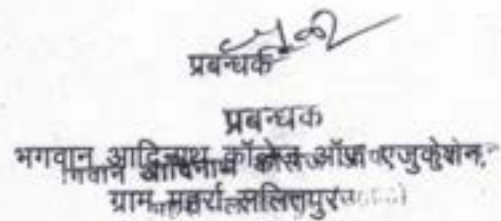 प्रबन्धक
प्रबन्धक
भगवान आदिनाथ कॉलेज ऑफ एजुकेशन,
ग्राम महर्रा ललितपुर